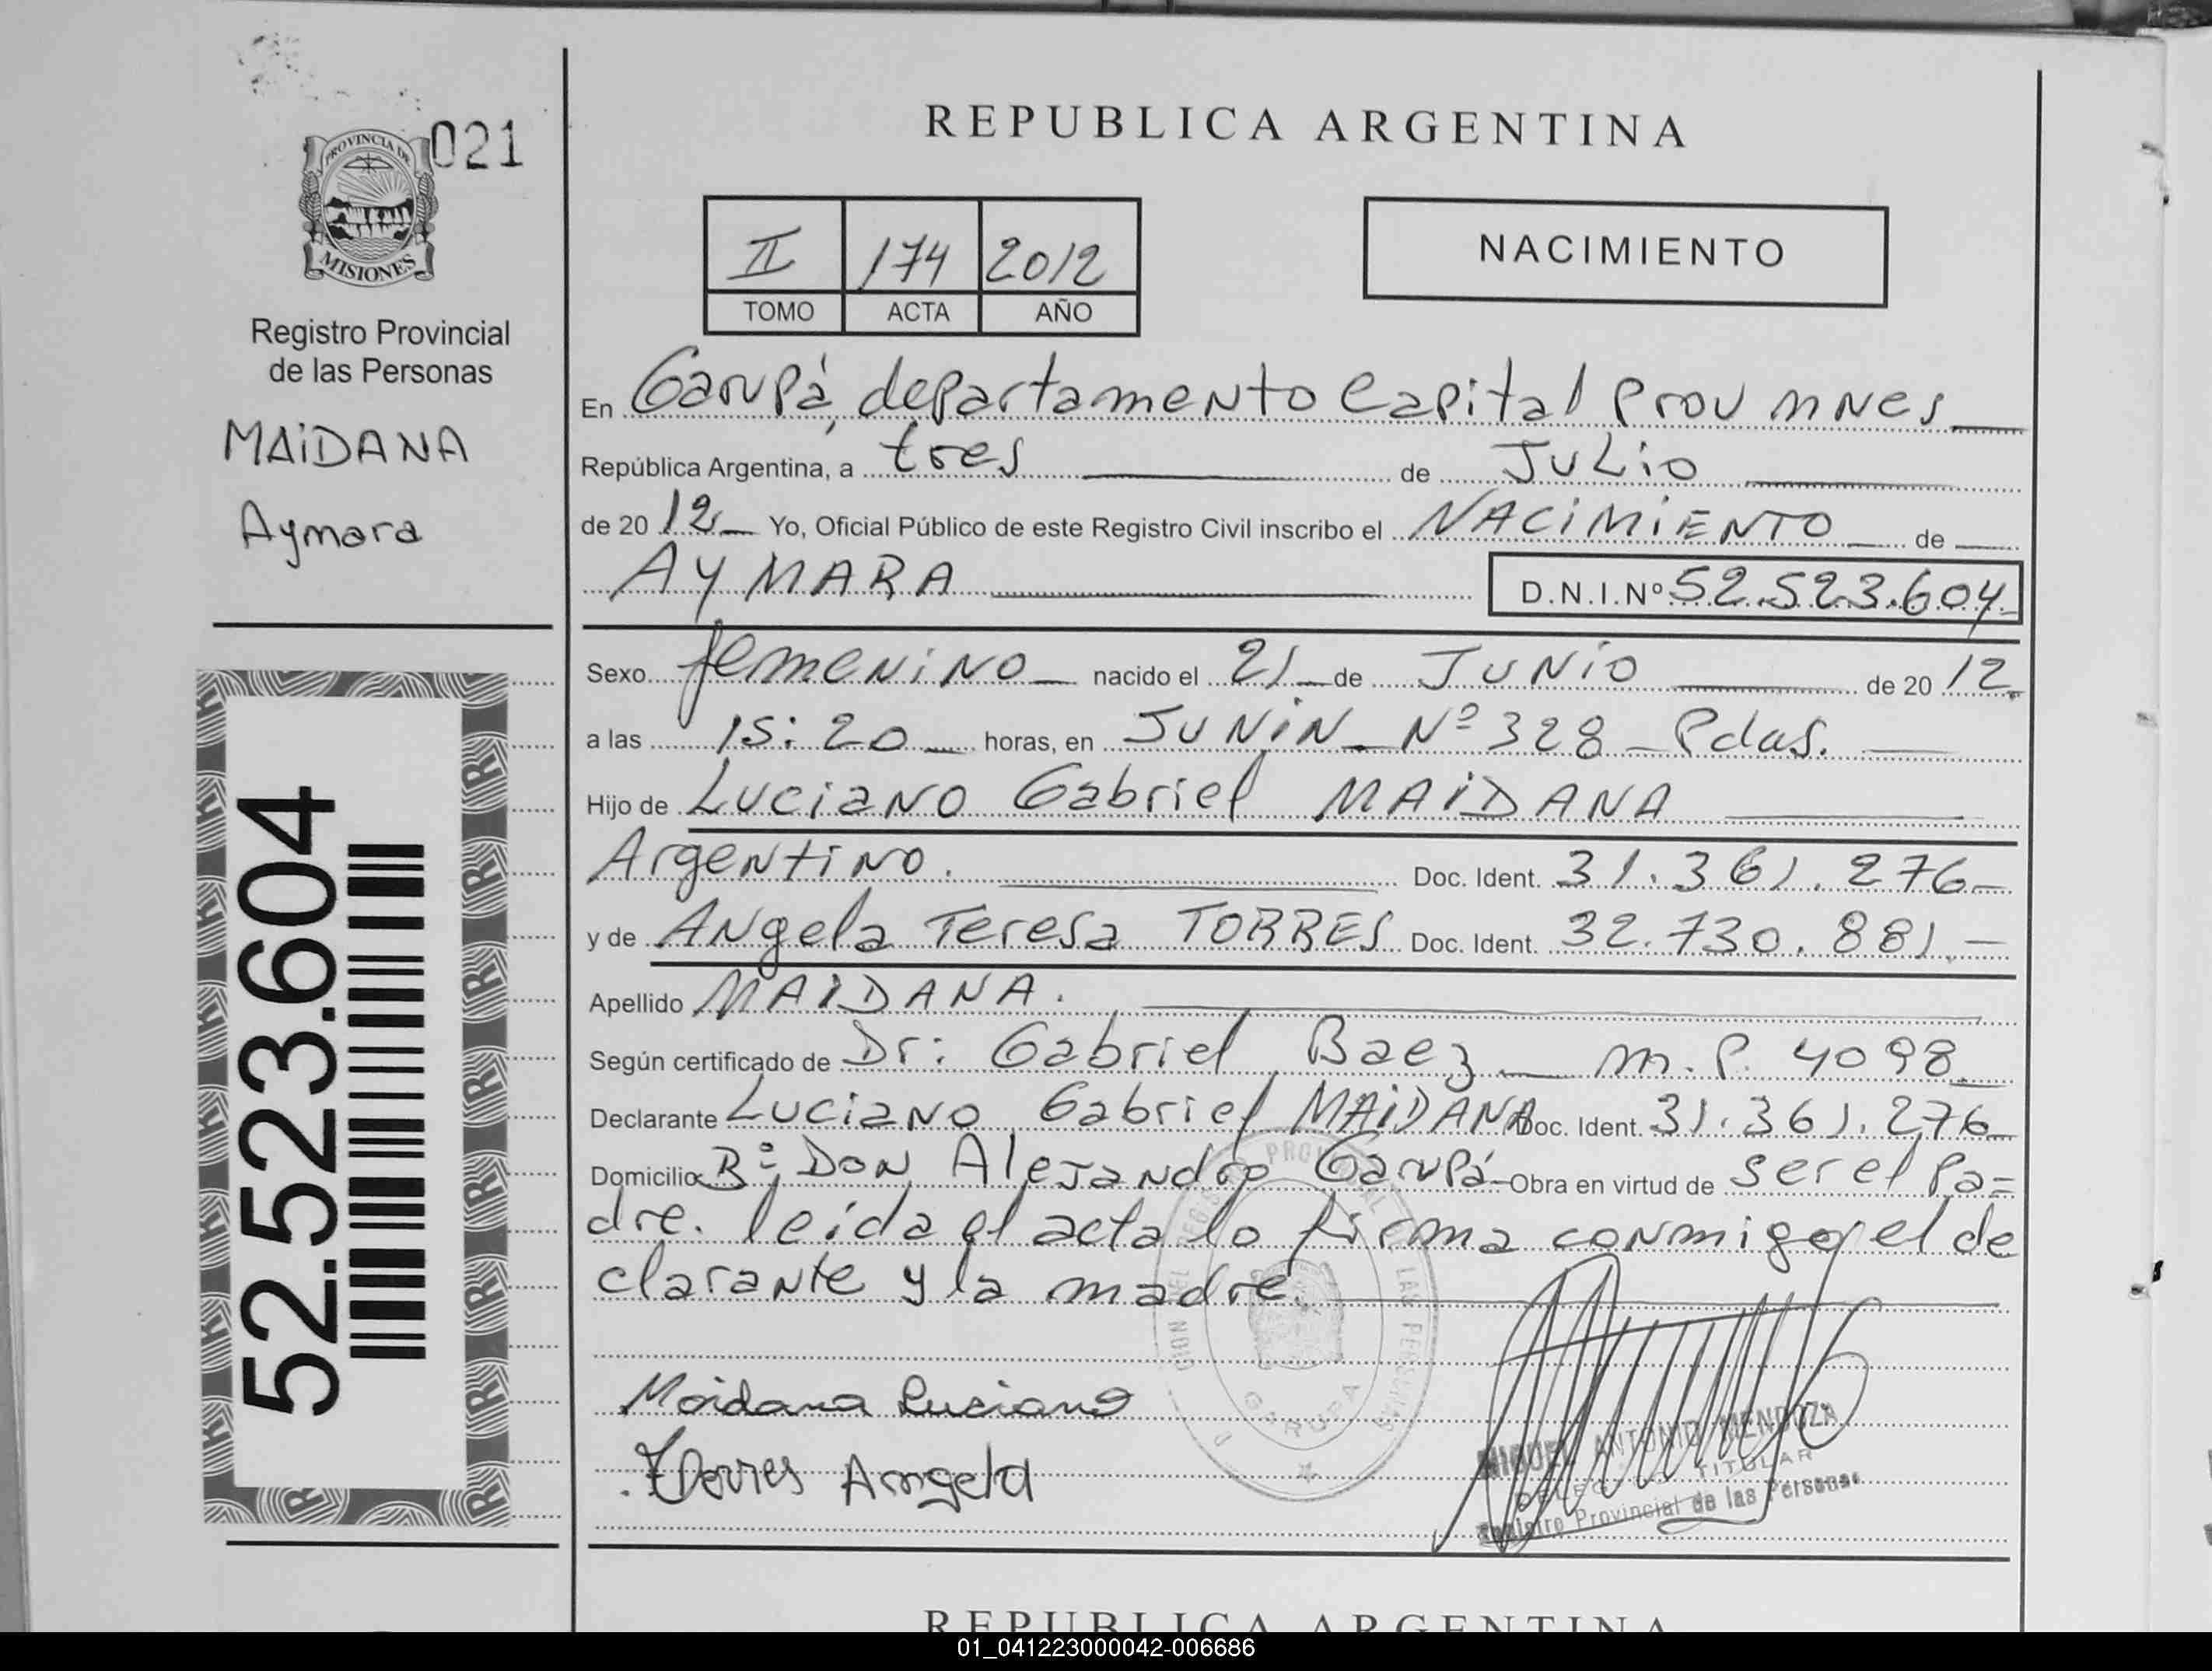 021
PROVINCIA DE
MISIONES
Registro Provincial
de las Personas
MAiDANA
Aymara
52.523.604
REPUBLICA ARGENTINA
II 174 2012
TOMO ACTA AÑO
NACIMIENTO
En Garupá, departamento Capital Prov mnes
República Argentina, a tres de JULio
de 20 12 Yo, Oficial Público de este Registro Civil inscribo el NACiMiENTO de
AYMARA D.N.I.Nº 52.523.604
Sexo femeNiNO nacido el 21 de JUNiO de 20 12
a las 15:20 horas, en JUNiN Nº 328 - Pdas.
Hijo de LuciaNO Gabriel MAiDANA
ArgeNtiNO. Doc. Ident. 31.361.276-
y de ANgela Teresa TORRES Doc. Ident. 32.730.881-
Apellido MAiDANA.
Según certificado de Dr: Gabriel Baez m.P. 4098
Declarante LuciaNO Gabriel MAiDANA Doc. Ident. 31.361.276
Domicilio Bº: DON AleJaNdro Garupá - Obra en virtud de ser el Pa=
dre. leida el acta lo firma coNmigo, el de
claraNte y la madre
Maidana Luciano
Torres Angela
GARUPA
MIGUEL ANTONIO MENDOZA
TITULAR
Registro Provincial de las Personas
REPUBLICA ARGENTINA
01_041223000042-006686